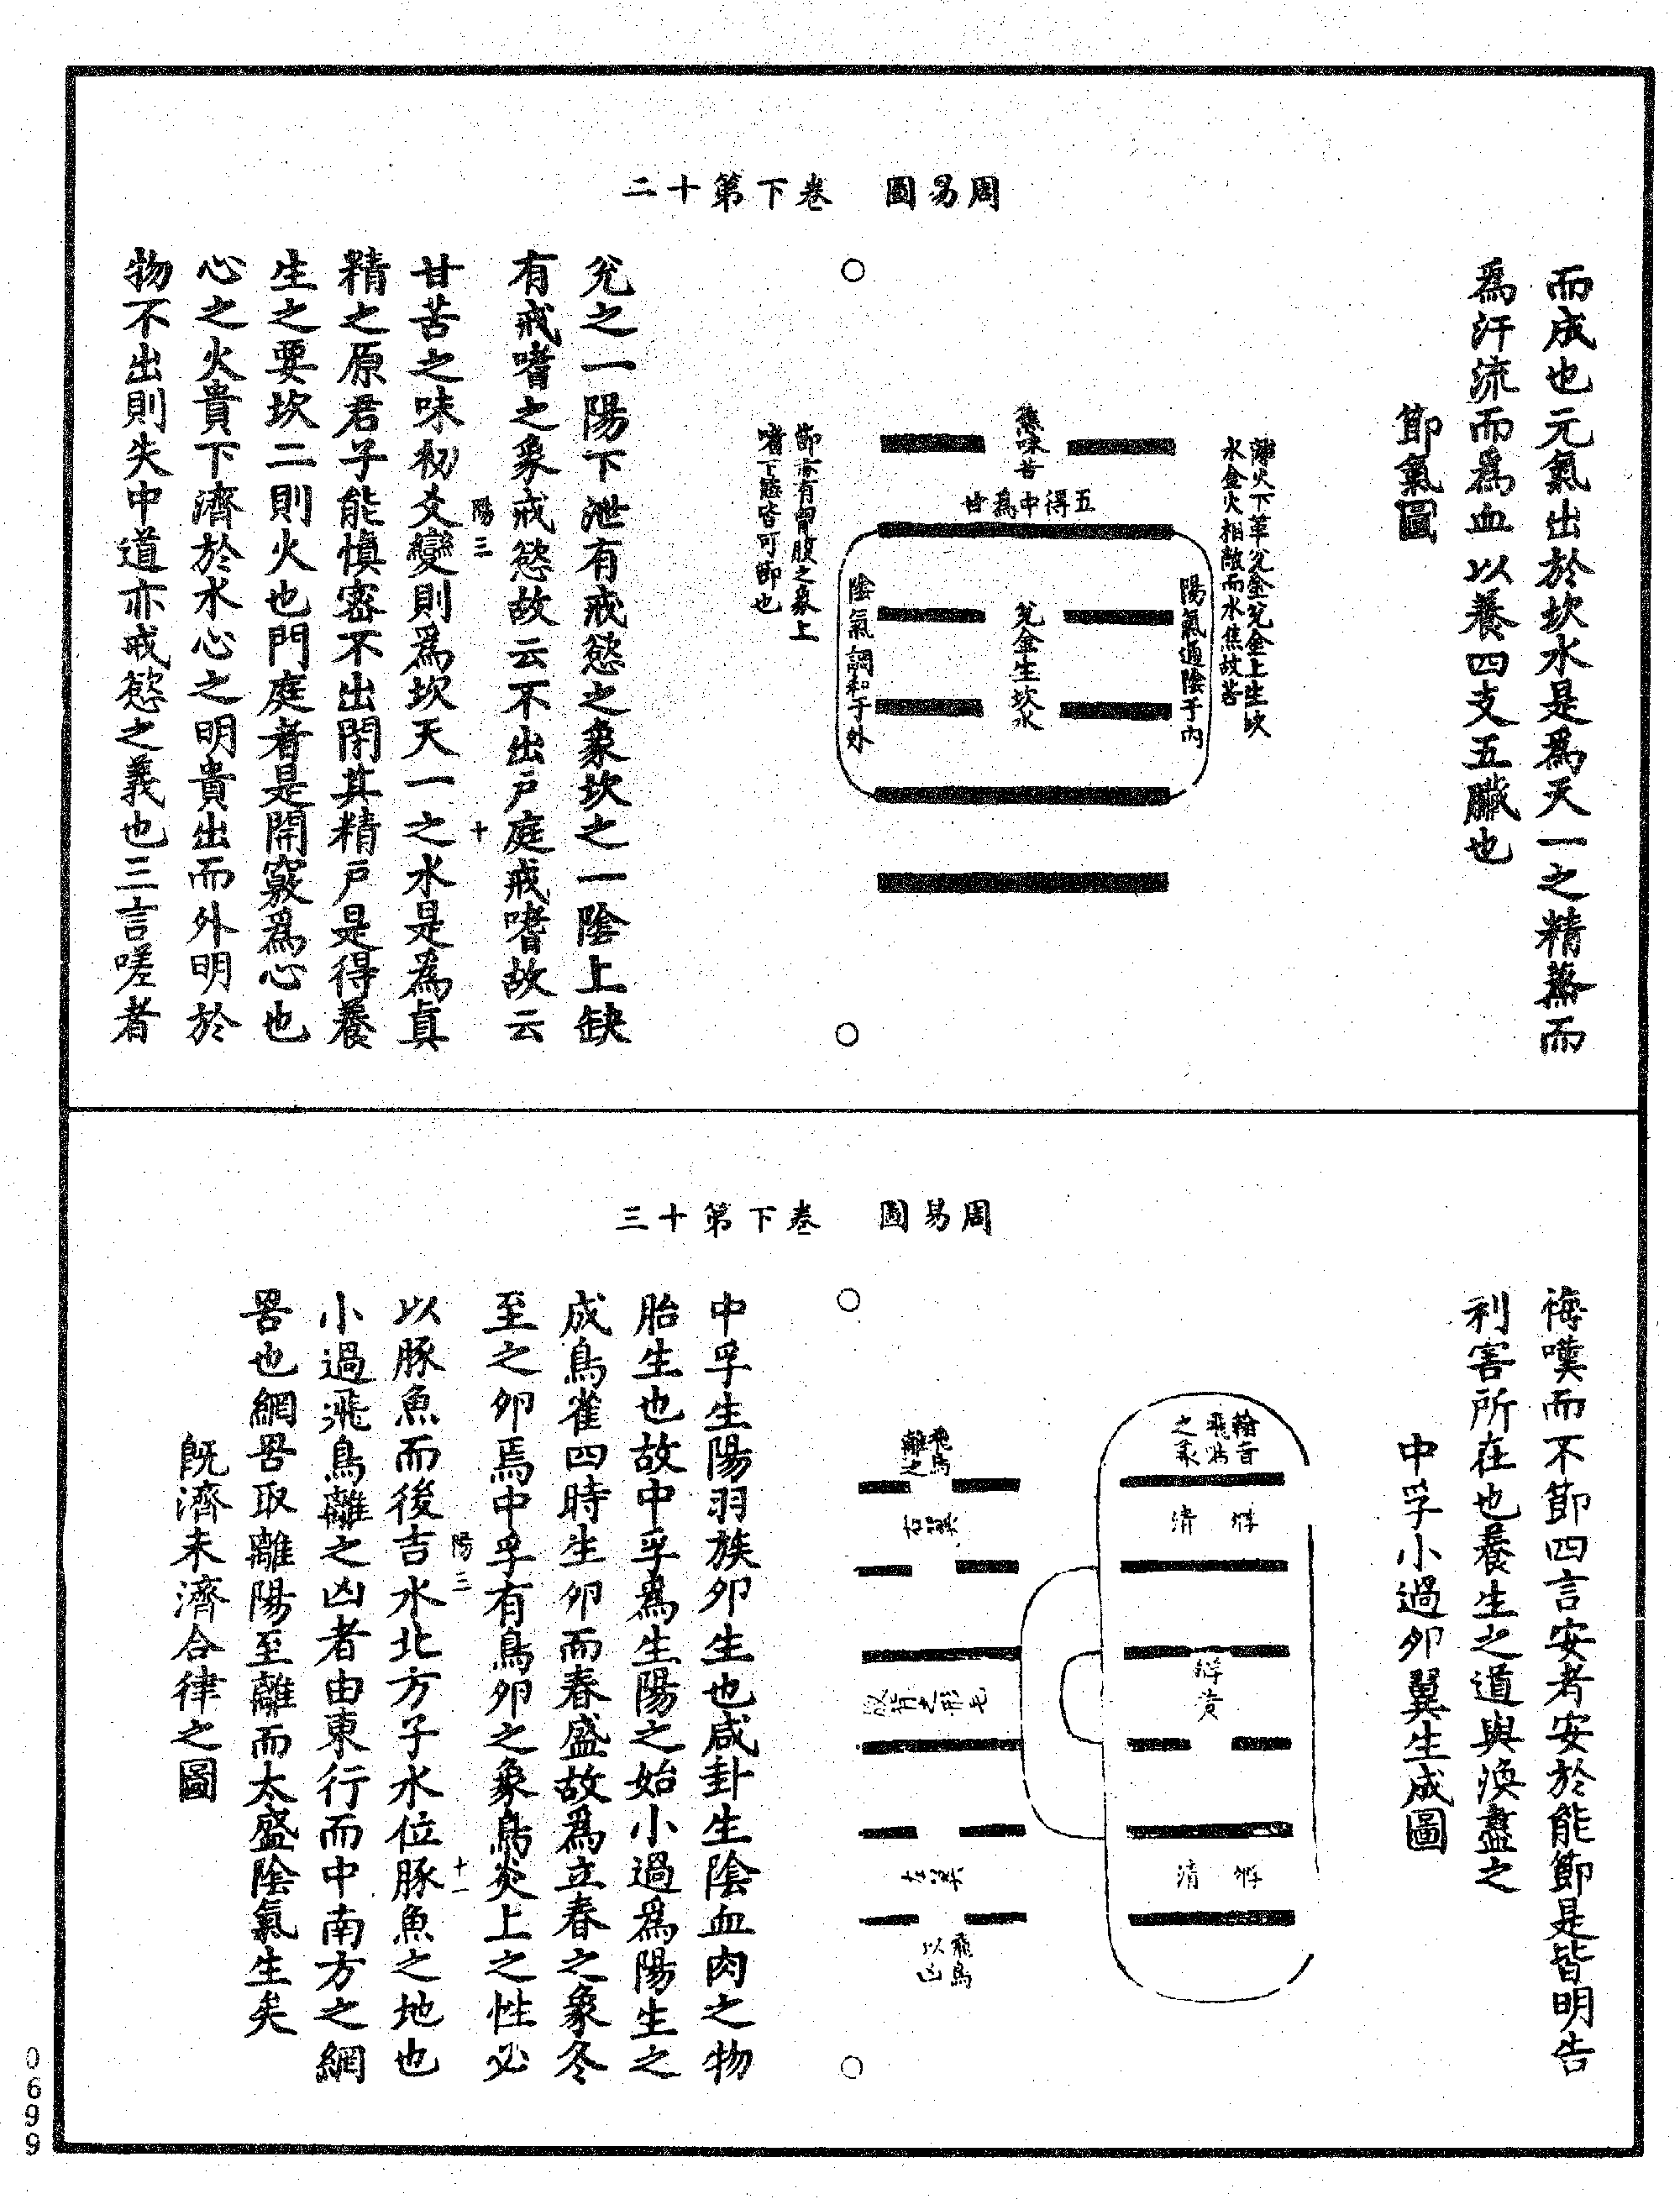 而成也元氣出於坎水是爲天一之精蒸而
爲汗流而爲血以養四支五臟也
節氣圖
周易圖　卷下第十二
離火下革兌金兌金上生坎
水金火相敵而水焦故苦
陽氣通陰于內
焦味苦
五得中爲甘
兌金生坎水
陰氣調和于外
節亦有胃腹之象上
嗜下慾皆可節也
兌之一陽下泄有戒慾之象坎之一陰上缺
有戒嗜之象戒慾故云不出戶庭戒嗜故云
陽三　十
甘苦之味初爻變則爲坎天一之水是爲眞
精之原君子能愼密不出閉其精戶是得養
生之要坎二則火也門庭者是開竅爲心也
心之火貴下濟於水心之明貴出而外明於
物不出則失中道亦戒慾之義也三言嗟者
悔嘆而不節四言安者安於能節是皆明告
利害所在也養生之道與渙盡之
中孚小過卵翼生成圖
周易圖　卷下第十三
翰音
飛
之象
清
黃
清
飛鳥
離之
飛鳥
以凶
中孚生陽羽族卵生也咸卦生陰血肉之物
胎生也故中孚爲生陽之始小過爲陽生之
成鳥雀四時生卵而春盛故爲立春之象冬
至之卵焉中孚有鳥卵之象鳥炎上之性必
陽三　十一
以豚魚而後吉水北方子水位豚魚之地也
小過飛鳥離之凶者由東行而中南方之網
罟也網罟取離陽至離而太盛陰氣生矣
既濟未濟合律之圖
0699